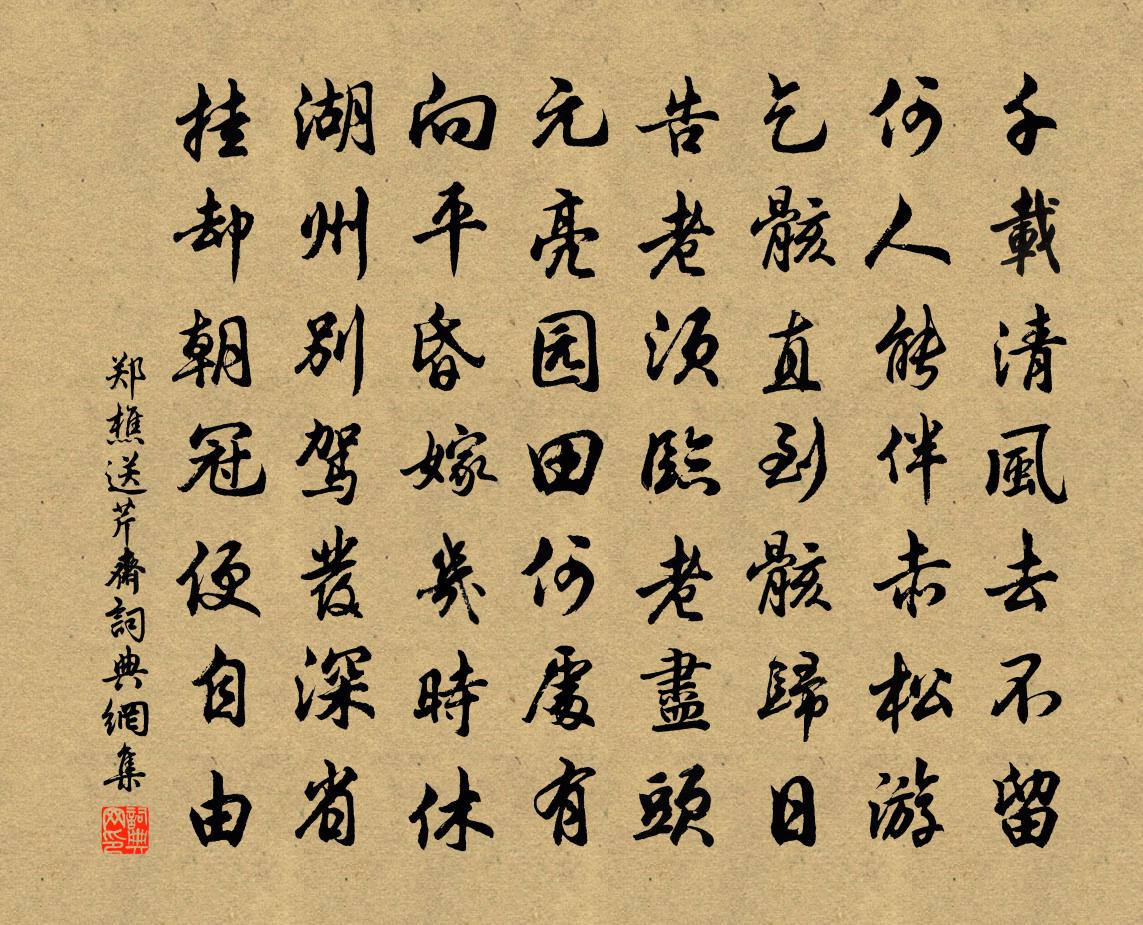 千載清風去不留
何人能伴赤松游
乞骸直到骸歸日
告老須臨老盡頭
元亮园田何處有
向平昏嫁幾時休
湖州別駕發深省
挂却朝冠便自由
郑樵送芹齋詞典網集
詞典网印